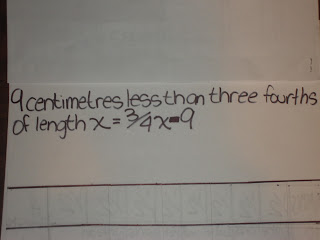 9 centimetres less than three fourths
of length x = 3/4x-9